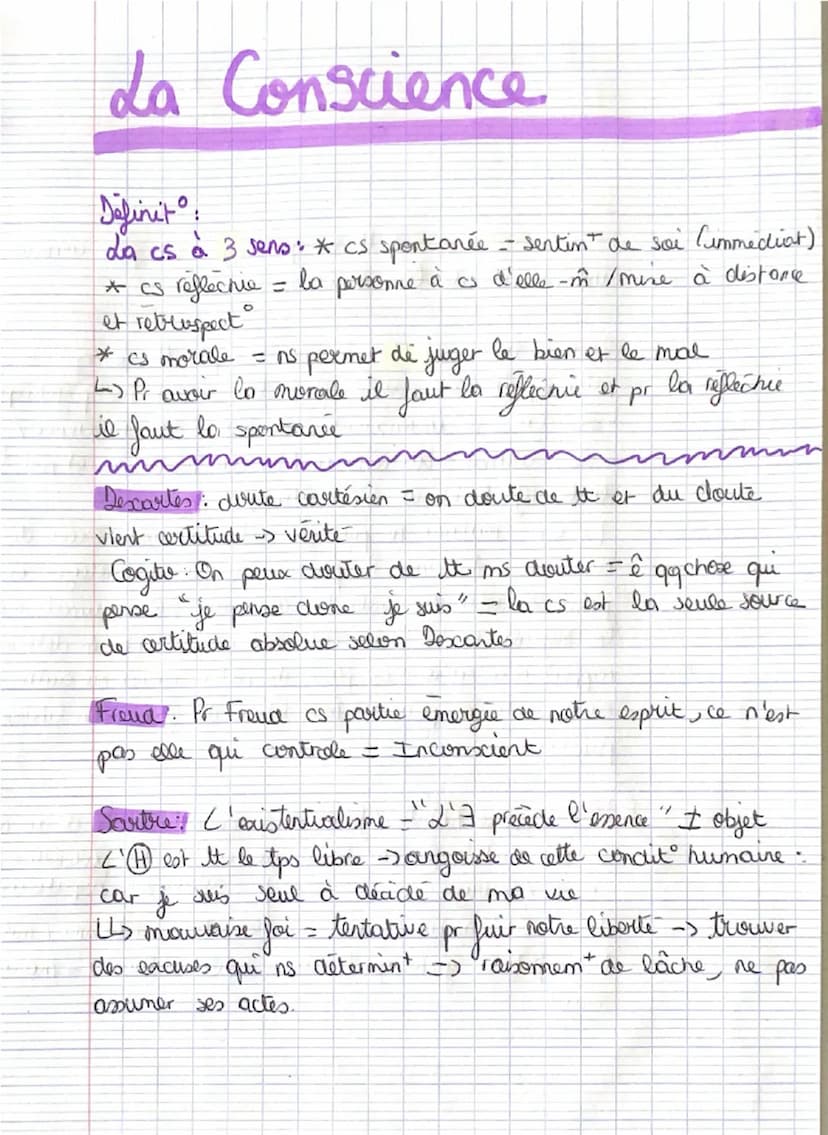 La Conscience
Définit° :
La cs à 3 sens : * cs spontanée = sentimt de soi (immédiat)
* cs réfléchie = la personne à cs d'elle-m̂ / mise à distance
et retrospect°
* cs morale = ns permet de juger le bien et le mal
↳ Pr avoir la morale il faut la réfléchie et pr la réfléchie
il faut la spontanée
Descartes : doute cartésien = on doute de tt et du doute
vient certitude -> vérité
Cogito : On peux douter de tt ms douter = ê qqchose qui
pense "je pense donc je suis" = la cs est la seule source
de certitude absolue selon Descartes
Freud : Pr Freud cs partie émergée de notre esprit, ce n'est
pas elle qui controle = Inconscient
Sartre : L'existentialisme = "L'∃ précède l'essence" ≠ objet
L'Ⓗ est tt le tps libre -> angoisse de cette condit° humaine :
car je suis seul à décidé de ma vie
↳ mauvaise foi = tentative pr fuir notre liberté -> trouver
des excuses qui ns détermint => raisonnemt de lâche, ne pas
assumer ses actes.